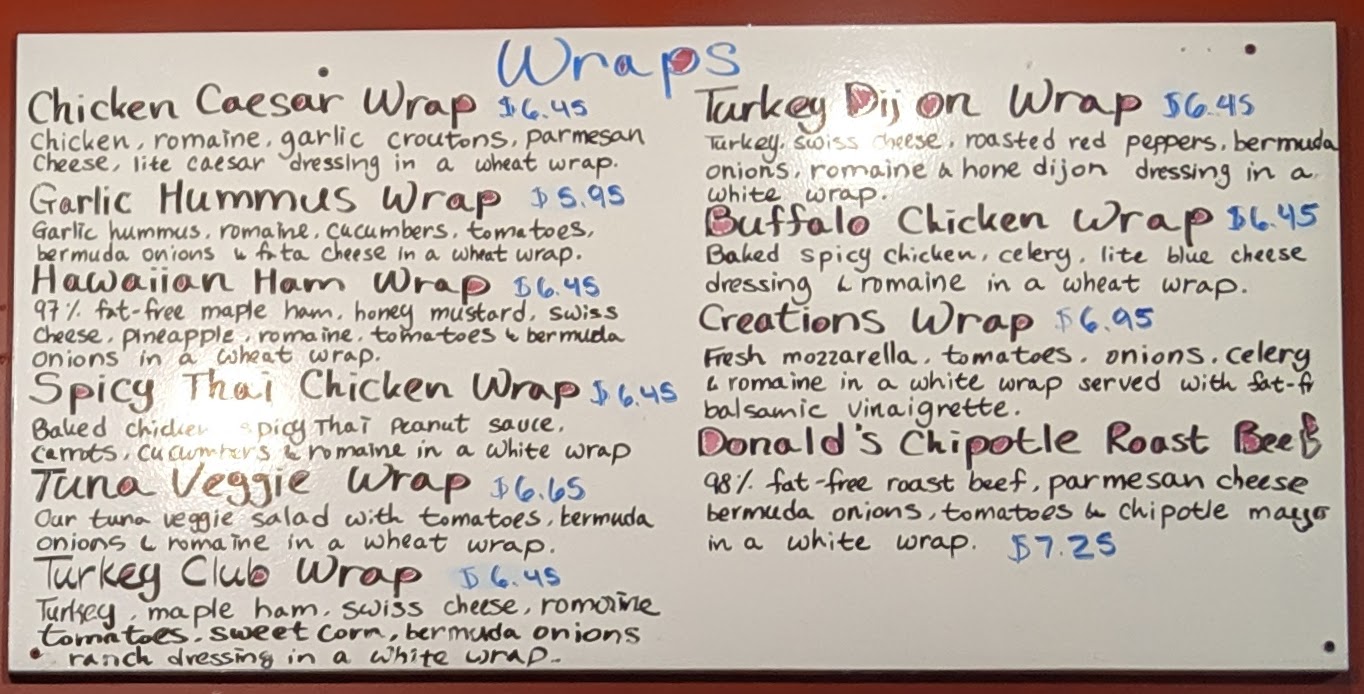 Wraps
Chicken Caesar Wrap $6.45
Chicken, romaine, garlic croutons, parmesan
cheese, lite caesar dressing in a wheat wrap.
Garlic Hummus Wrap $5.95
Garlic hummus, romaine, cucumbers, tomatoes,
bermuda onions & feta cheese in a wheat wrap.
Hawaiian Ham Wrap $6.45
97% fat-free maple ham, honey mustard, swiss
cheese, pineapple, romaine, tomatoes & bermuda
onions in a wheat wrap.
Spicy Thai Chicken Wrap $6.45
Baked chicken spicy Thai Peanut sauce,
carrots, cucumbers & romaine in a white wrap
Tuna Veggie Wrap $6.65
Our tuna veggie salad with tomatoes, bermuda
onions & romaine in a wheat wrap.
Turkey Club Wrap $6.45
Turkey, maple ham, swiss cheese, romaine
tomatoes, sweet corn, bermuda onions
ranch dressing in a white wrap.
Turkey Dijon Wrap $6.45
Turkey, swiss cheese, roasted red peppers, bermuda
onions, romaine & hone dijon dressing in a
white wrap.
Buffalo Chicken Wrap $6.45
Baked spicy chicken, celery, lite blue cheese
dressing & romaine in a wheat wrap.
Creations Wrap $6.95
Fresh mozzarella, tomatoes, onions, celery
& romaine in a white wrap served with fat-fr
balsamic vinaigrette.
Donald's Chipotle Roast Beef
98% fat-free roast beef, parmesan cheese
bermuda onions, tomatoes & chipotle mayo
in a white wrap. $7.25